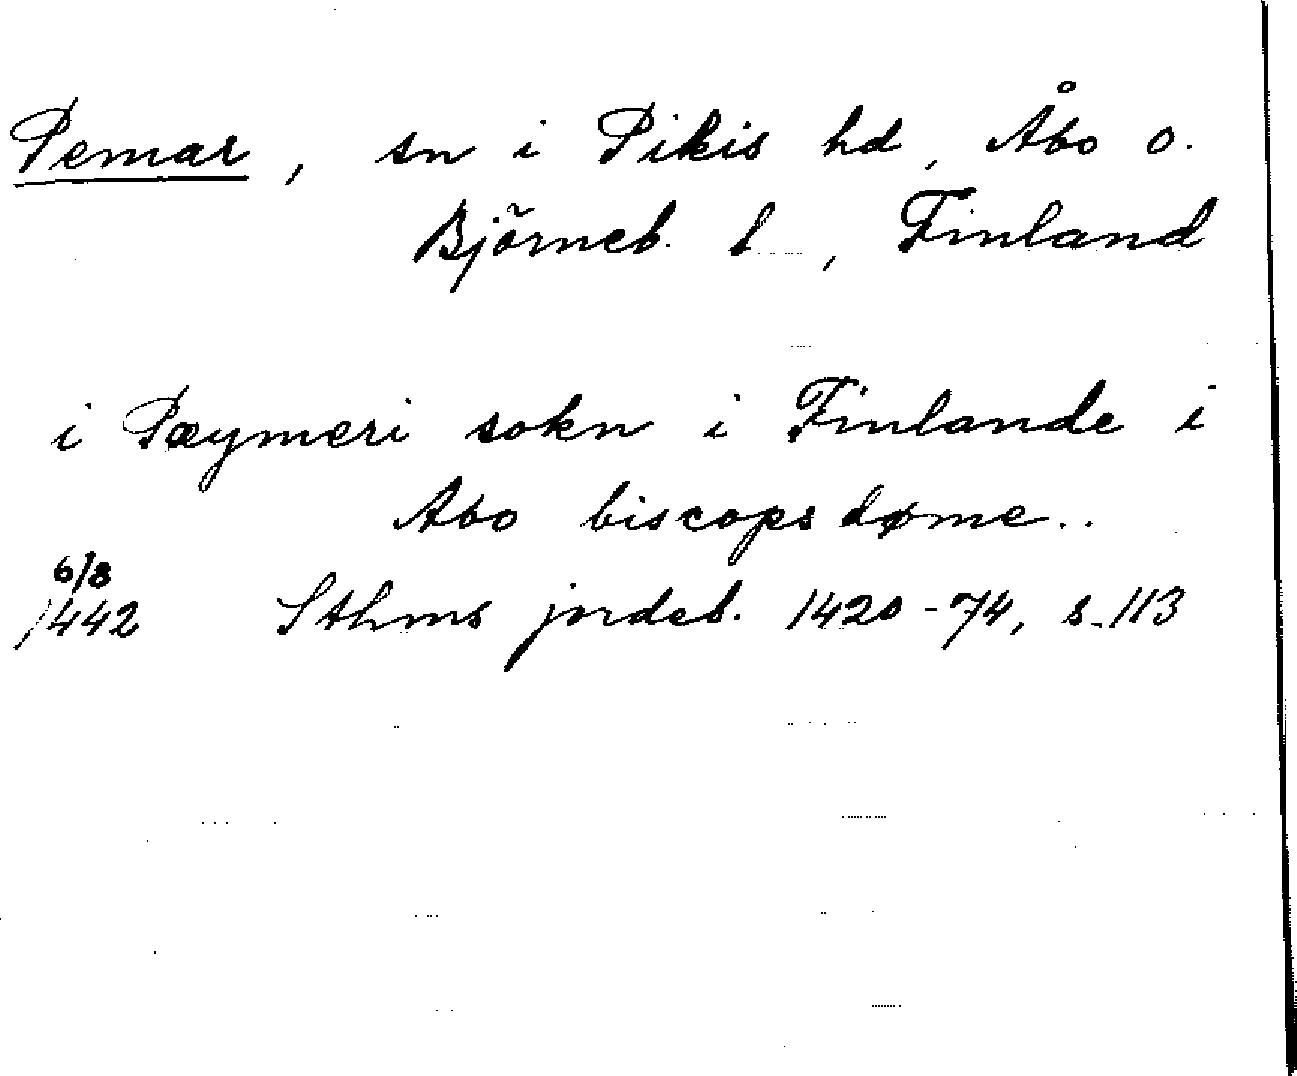 Pemar, sn i Pikis hd, Åbo o.
Björneb. l, Finland
i Pæymeri sokn i Finlande i
Abo biscopsdøme..
6/8
1442 Sthms jordeb. 1420-74, s. 113